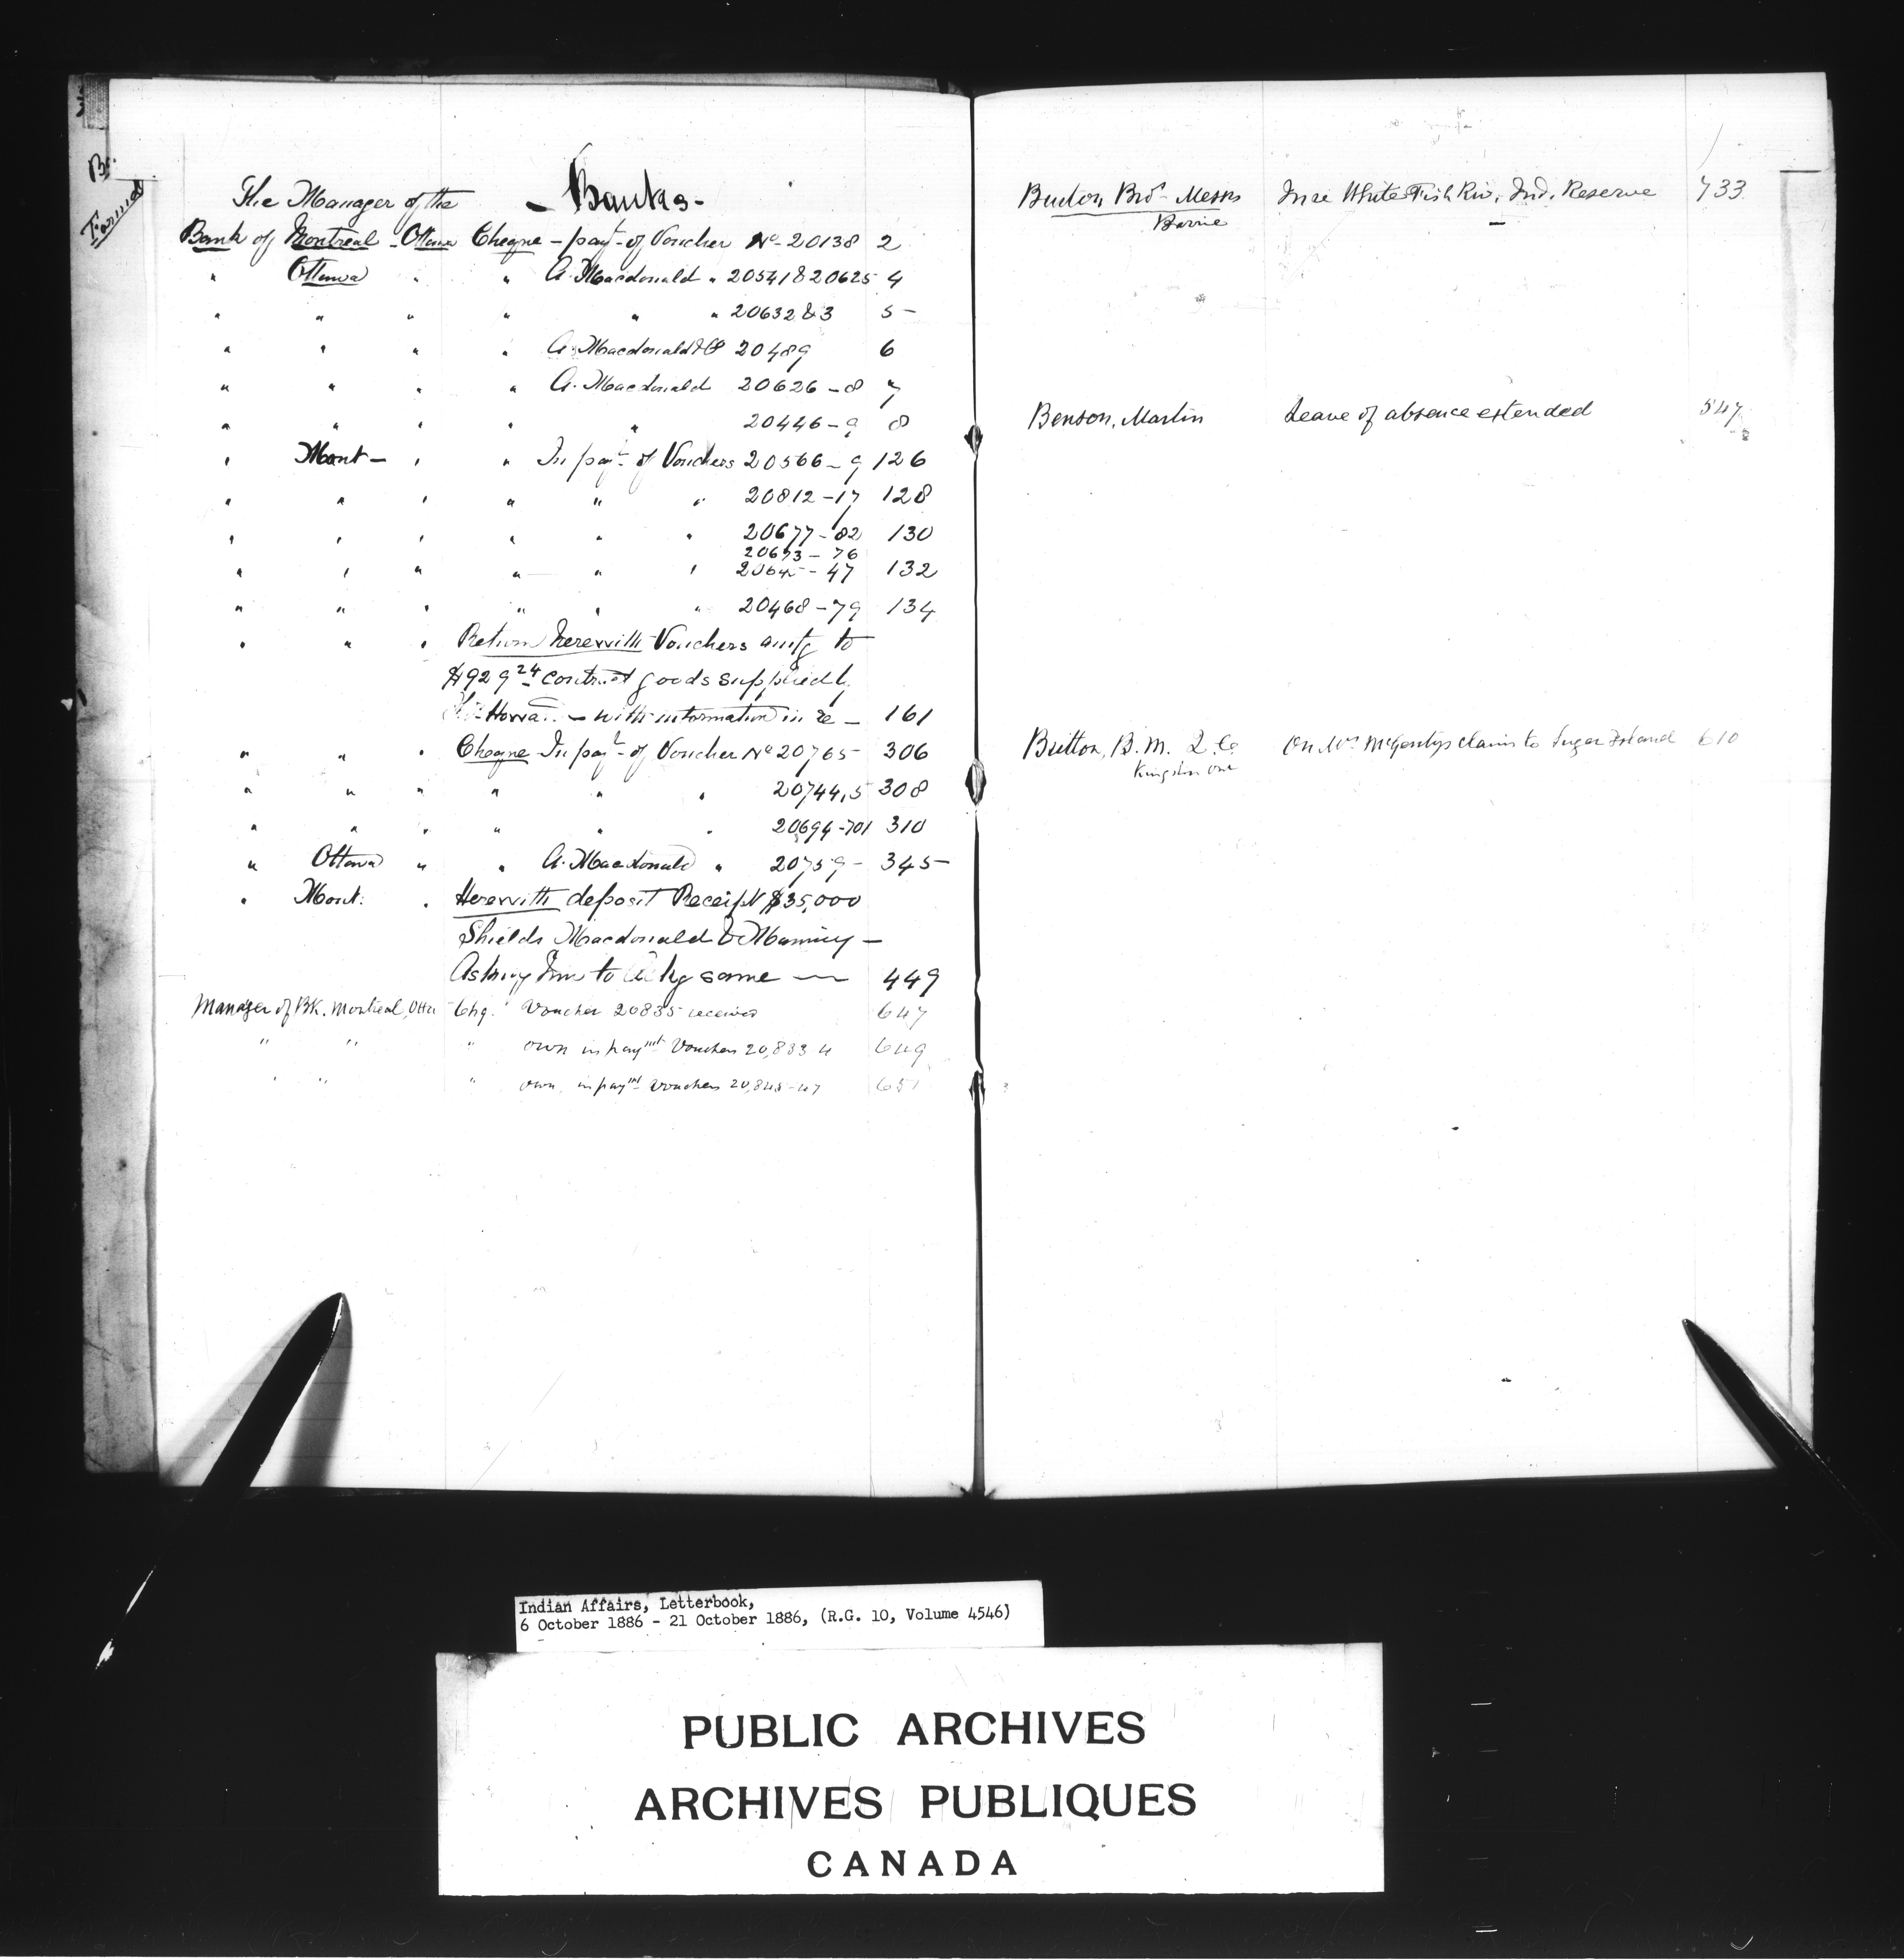 B.
The Manager of the - Banks -
Bank of Montreal - Ottawa Cheque - payt of Voucher No 20138 2
" Ottawa " " A. Macdonald " 20541 & 20625 4
" " " " " " 20632 & 3 5 -
" " " " A. Macdonald & Co 20489 6
" " " " A. Macdonald 20626 - 8 7
" " " " " 20446 - 9 8
" Mont - " " In payt of Vouchers 20566 - 9 126
" " " " " " 20812 - 17 128
" " " " " " 20677 - 82 130
20673 - 76
" " " " " " 2064 - 47 132
" " " " " " 20468 - 79 134
" " " Return herewith Vouchers amtg to
$929 24 contract goods supplied
- with information in re - 161
" " " Cheque In payt of Voucher No 20765 306
" " " " " " 20744,5 308
" " " " " " 20694 - 701 310
" Ottawa " " A. Macdonald " 20759 - 345 -
" Mont: " Herewith deposit Receipt $35,000
Shields Macdonald & Manning -
Asking him to same — 449
Manager of BK. Montreal, Ottw Chq. Voucher 20835 received 647
" " " own in paymt Vouchers 20,833 4 649
" " " own in paymt Vouchers 20,845 - 47 651
Burton, Bros Messrs In re White Fish Riv. Ind. Reserve 733
Barrie
Benson, Martin Leave of absence extended 547
Britton, B. M. Q.C. On claim to Sugar Island 610
Kingston Ont
Indian Affairs, Letterbook,
6 October 1886 - 21 October 1886, (R.G. 10, Volume 4546)
PUBLIC ARCHIVES
ARCHIVES PUBLIQUES
CANADA